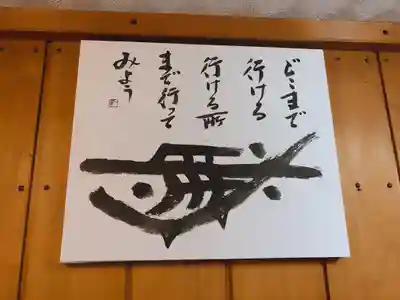 どこまで
行ける
行ける所
まで行って
みよう